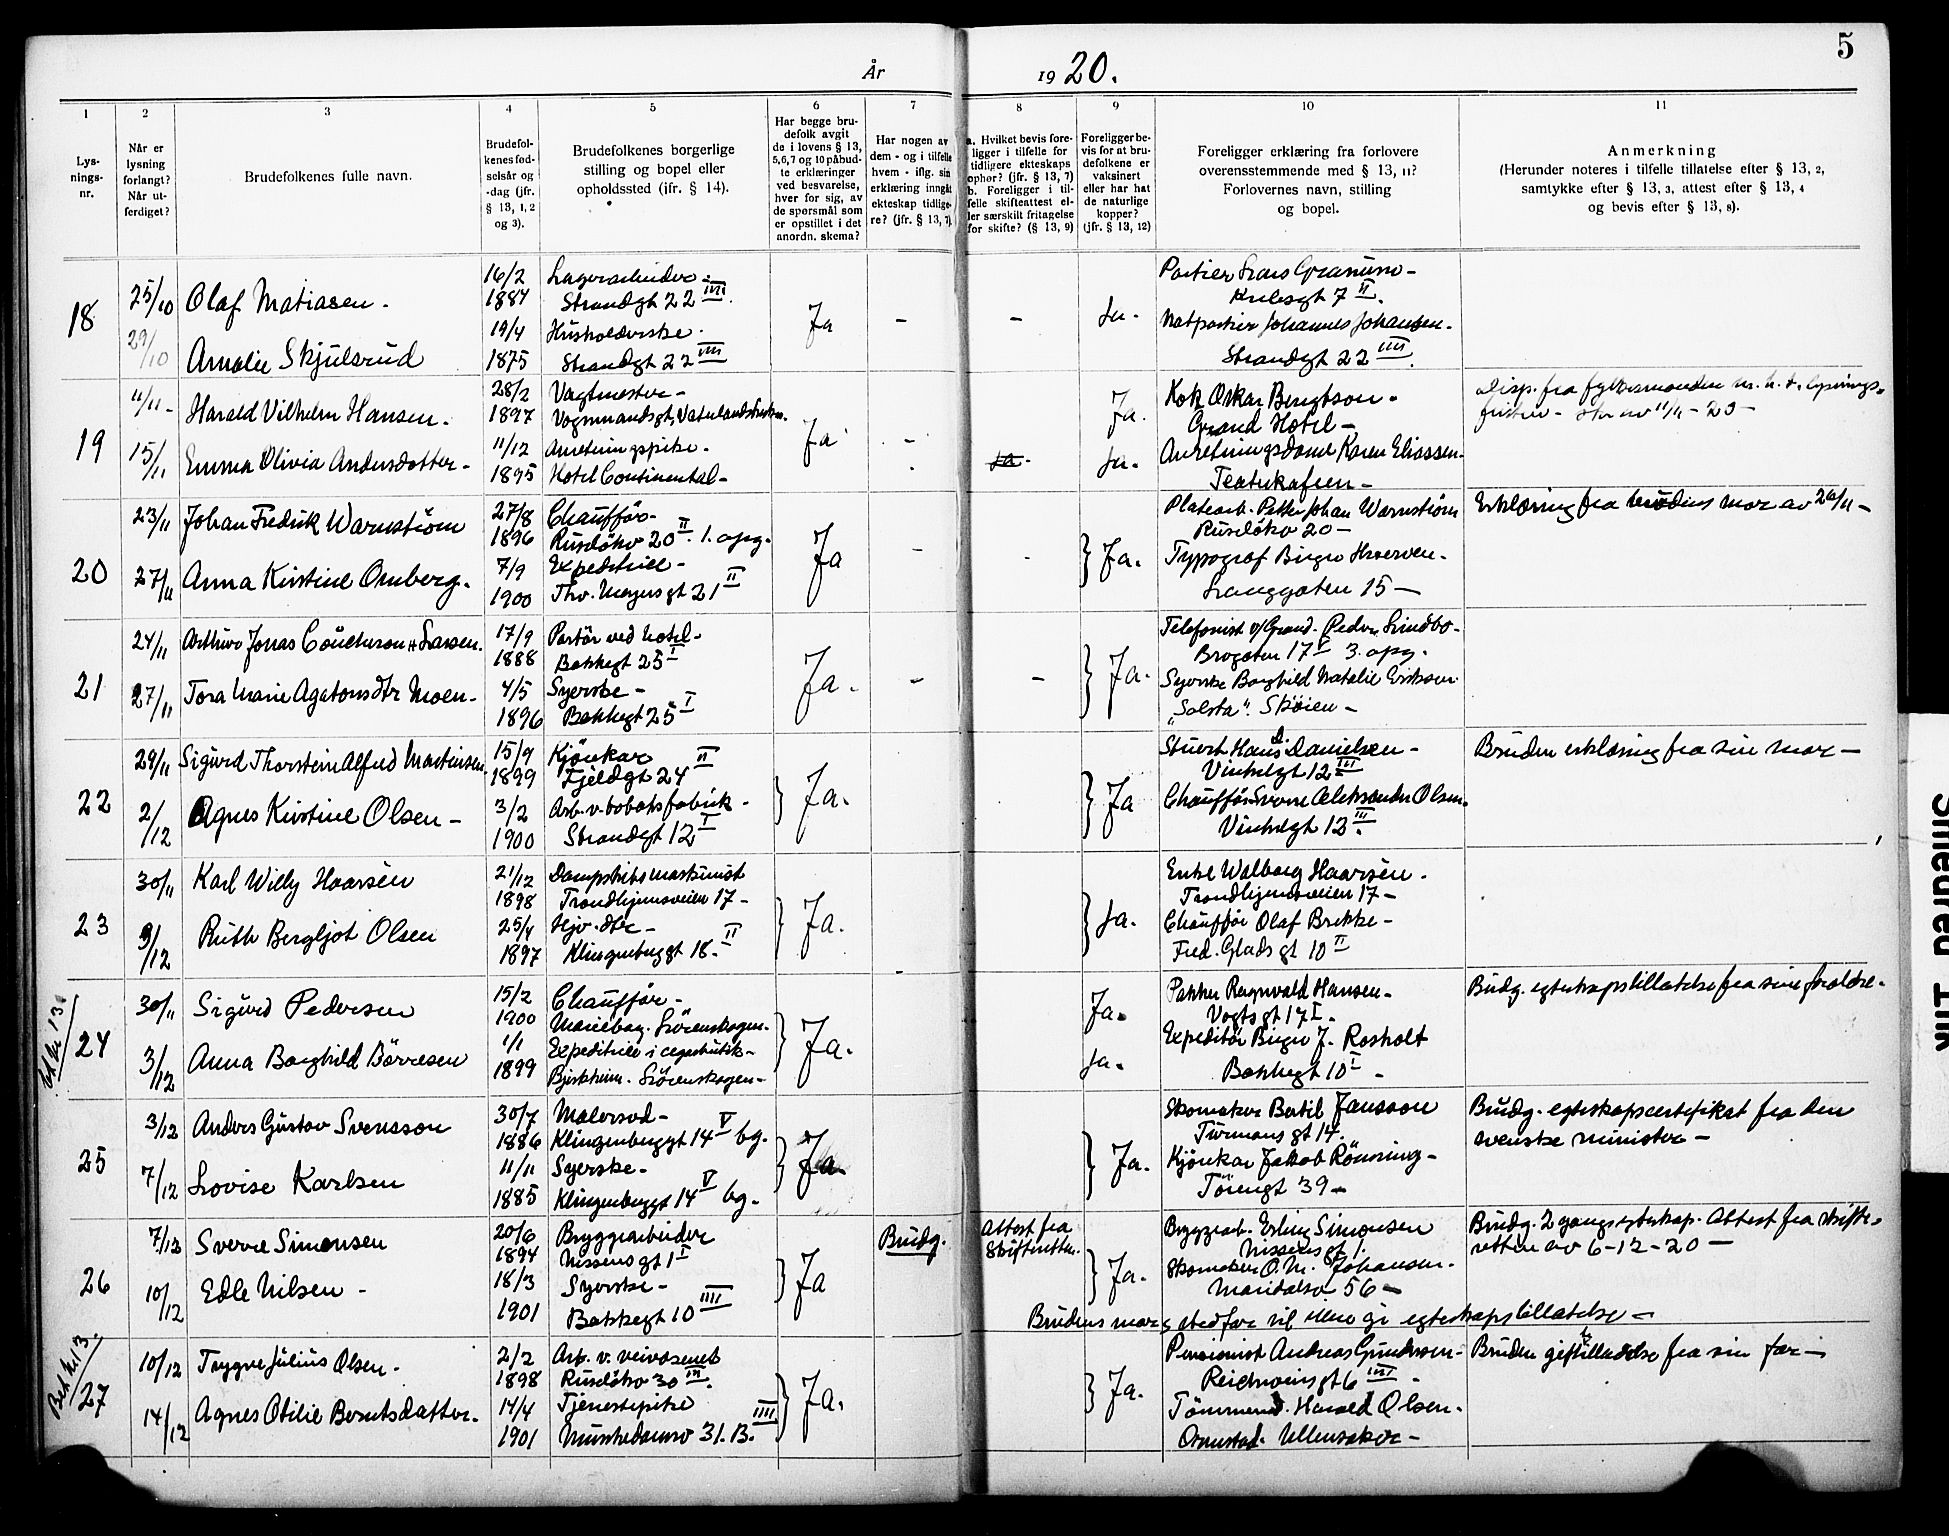 År 1920.
5
1 2 3 4 5 6 7 8 9 10 11
Lys-
nings-
nr.
Når er
lysning
forlangt?
Når ut-
ferdiget?
Brudefolkenes fulle navn.
Brudefol-
kenes fød-
selsår og
-dag (jfr.
§ 13, 1, 2
og 3).
Brudefolkenes borgerlige
stilling og bopel eller
opholdssted (jfr. § 14).
Har begge bru-
defolk avgit
de i lovens § 13,
5,6,7 og 10 påbud-
te erklæringer
ved besvarelse,
hver for sig, av
de spørsmål som
er opstillet i det
anordn. skema?
Har nogen av
dem - og i tilfelle
hvem - iflg. sin
erklæring inngåt
ekteskap tidlige-
re? (jfr. § 13, 7)
a. Hvilket bevis fore-
ligger i tilfelle for
tidligere ekteskaps
ophør? (jfr. § 13, 7)
b. Foreligger i til-
felle skifteattest el-
ler særskilt fritagelse
for skifte? (§ 13, 9)
Foreligger be-
vis for at bru-
defolkene er
vaksinert
eller har hat
de naturlige
kopper?
(jfr. § 13, 12)
Foreligger erklæring fra forlovere
overensstemmende med § 13, 11?
Forlovernes navn, stilling
og bopel.
Anmerkning
(Herunder noteres i tilfelle tillatelse efter § 13, 2,
samtykke efter § 13, 3, attest efter § 13, 4
og bevis efter § 13, 8).
18
25/10 Olaf Matiasen -
16/2 1884
Lagerarbeider -
Strandgt 22 IIII.
29/10 Amalie Skjulsrud
19/4 1875
Husholderske -
Strandgt 22 IIII
Ja - - Ja -
Portier Lars Granum -
gt 7 II.
Natportier Johannes Johansen -
Strandgt 22 IIII.
19
11/11 - Harald Vilhelm Hansen -
28/2 1897
Vagtmester -
Vognmandsgt,
15/11 Emma Olivia Andersdatter -
11/12 1895
Anretningspike -
Hotel Continental -
Ja - Ja - Ja - Ja -
Kok Oskar Bengtson -
Grand Hotel -
Anretningsdame Karen Eliassen -
Teaterkafeen -
Disp. fra fylkesmanden m. h. t. lysnings-
fristen - av 11/11 - 20 -
20
23/11 Johan Fredrik Warnström
27/8 1896
Chauffør -
Ruseløkv 20 II. 1. opg.
27/11 Anna Kirstine Omberg.
7/9 1900
Expeditrice -
Thv. Meyers gt 21 II
Ja - - Ja.
Platearb. Petter Johan Warnström
Ruseløkv 20 -
Typograf Birger -
Langgaten 15 -
Erklæring fra brudens mor av 26/11 -
21
24/11 Arthur Jonas Larsen.
17/9 1888
Portör ved hotel -
Bakkegt 25 I
27/11 Tora Marie Agatonsdtr Moen -
4/5 1896
Syerske -
Bakkegt 25 I
Ja. - - Ja.
Telefonist v/Grand. Peder Lindbo -
Brogaten 17 I 3. opg.
Syerske Borghild Natalie Eriksen
"Solsta". Skøien -
22
29/11 Sigurd Thorstein Alfred Martinsen
15/9 1899
Kjörekar
Fjeldgt 24 II
2/12 Agnes Kirstine Olsen -
3/2 1900
Arb. v. tobaksfabrik -
Strandgt 12 I
Ja. Ja
Stuert Hans D. Danielsen -
Vinkelgt 12 III
Chauffør Aleksander Olsen.
Vinkelgt 12 III.
Bruden erklæring fra sin mor -
23
30/11 Karl Willy Haarsén
21/12 1898
Dampskibsmaskinist
Trondhjemsveien 17 -
3/12 Ruth Bergljot Olsen
25/4 1897
Hjv. dtr -
Klingenberggt 18. II
Ja. Ja.
Enke Walborg Haarsén.
Trondhjemsveien 17 -
Chauffør Olaf Brekke -
Fred. Glads gt 10 II
24
30/11 Sigurd Pedersen
15/2 1900
Chauffør -
Marieborg. Lørenskogen.
3/12 Anna Borghild Börresen
1/1 1899
Expeditrice i cigarbutik -
Bjerkheim. Lørenskogen -
Ja. Ja. Ja.
Pakker Ragnvald Hansen -
Vogts gt 17 I -
Expeditör Birger J. Rosholt
Bakkegt 10 I -
Brudg. egteskapstillatelse fra sine forældre.
25
3/12 Anders Gustav Svensson
30/7 1886
Malersvd -
Klingenberggt 14 V bg.
7/12 Lovise Karlsen
11/11 1885
Syerske -
Klingenberggt 14 V bg.
Ja. Ja.
Skomaker Bertil Jansson
Turmans gt 14.
Kjörekar Jakob Rönning -
Töiengt 39 -
Brudg. egteskapscertifikat fra den
svenske minister -
26
7/12 Sverre Simensen
20/6 1894
Bryggearbeider
Nissens gt 1 I
10/12 Edle Nilsen -
18/3 1901
Syerske -
Bakkegt 10 IIII
Ja
Brudg.
Attest fra
Skifteretten.
Ja.
Bryggearb. Erling Simonsen
Nissens gt 1.
Skomaker O. M. Johansen.
Maridalsv 56 -
Brudg. 2 gangs egteskap. Attest fra skifte-
retten av 6-12-20 -
Brudens mor og stedfar vil ikke gi egteskapstillatelse -
Bet. kr. 13.
27
10/12 Trygve Julius Olsen -
2/2 1898
Arb. v. veivæsenet
Ruseløkv 30 III.
14/12 Agnes Otilie Berntsdatter.
14/4 1901
Tjenestepike
Munkedamsv 31. B. IIII
Ja. Ja.
Pensionist Andreas Gundersen -
gt 6 IIII -
Tömmermd. Harald Olsen.
Ullensaker -
Bruden giftetilladelse fra sin far -